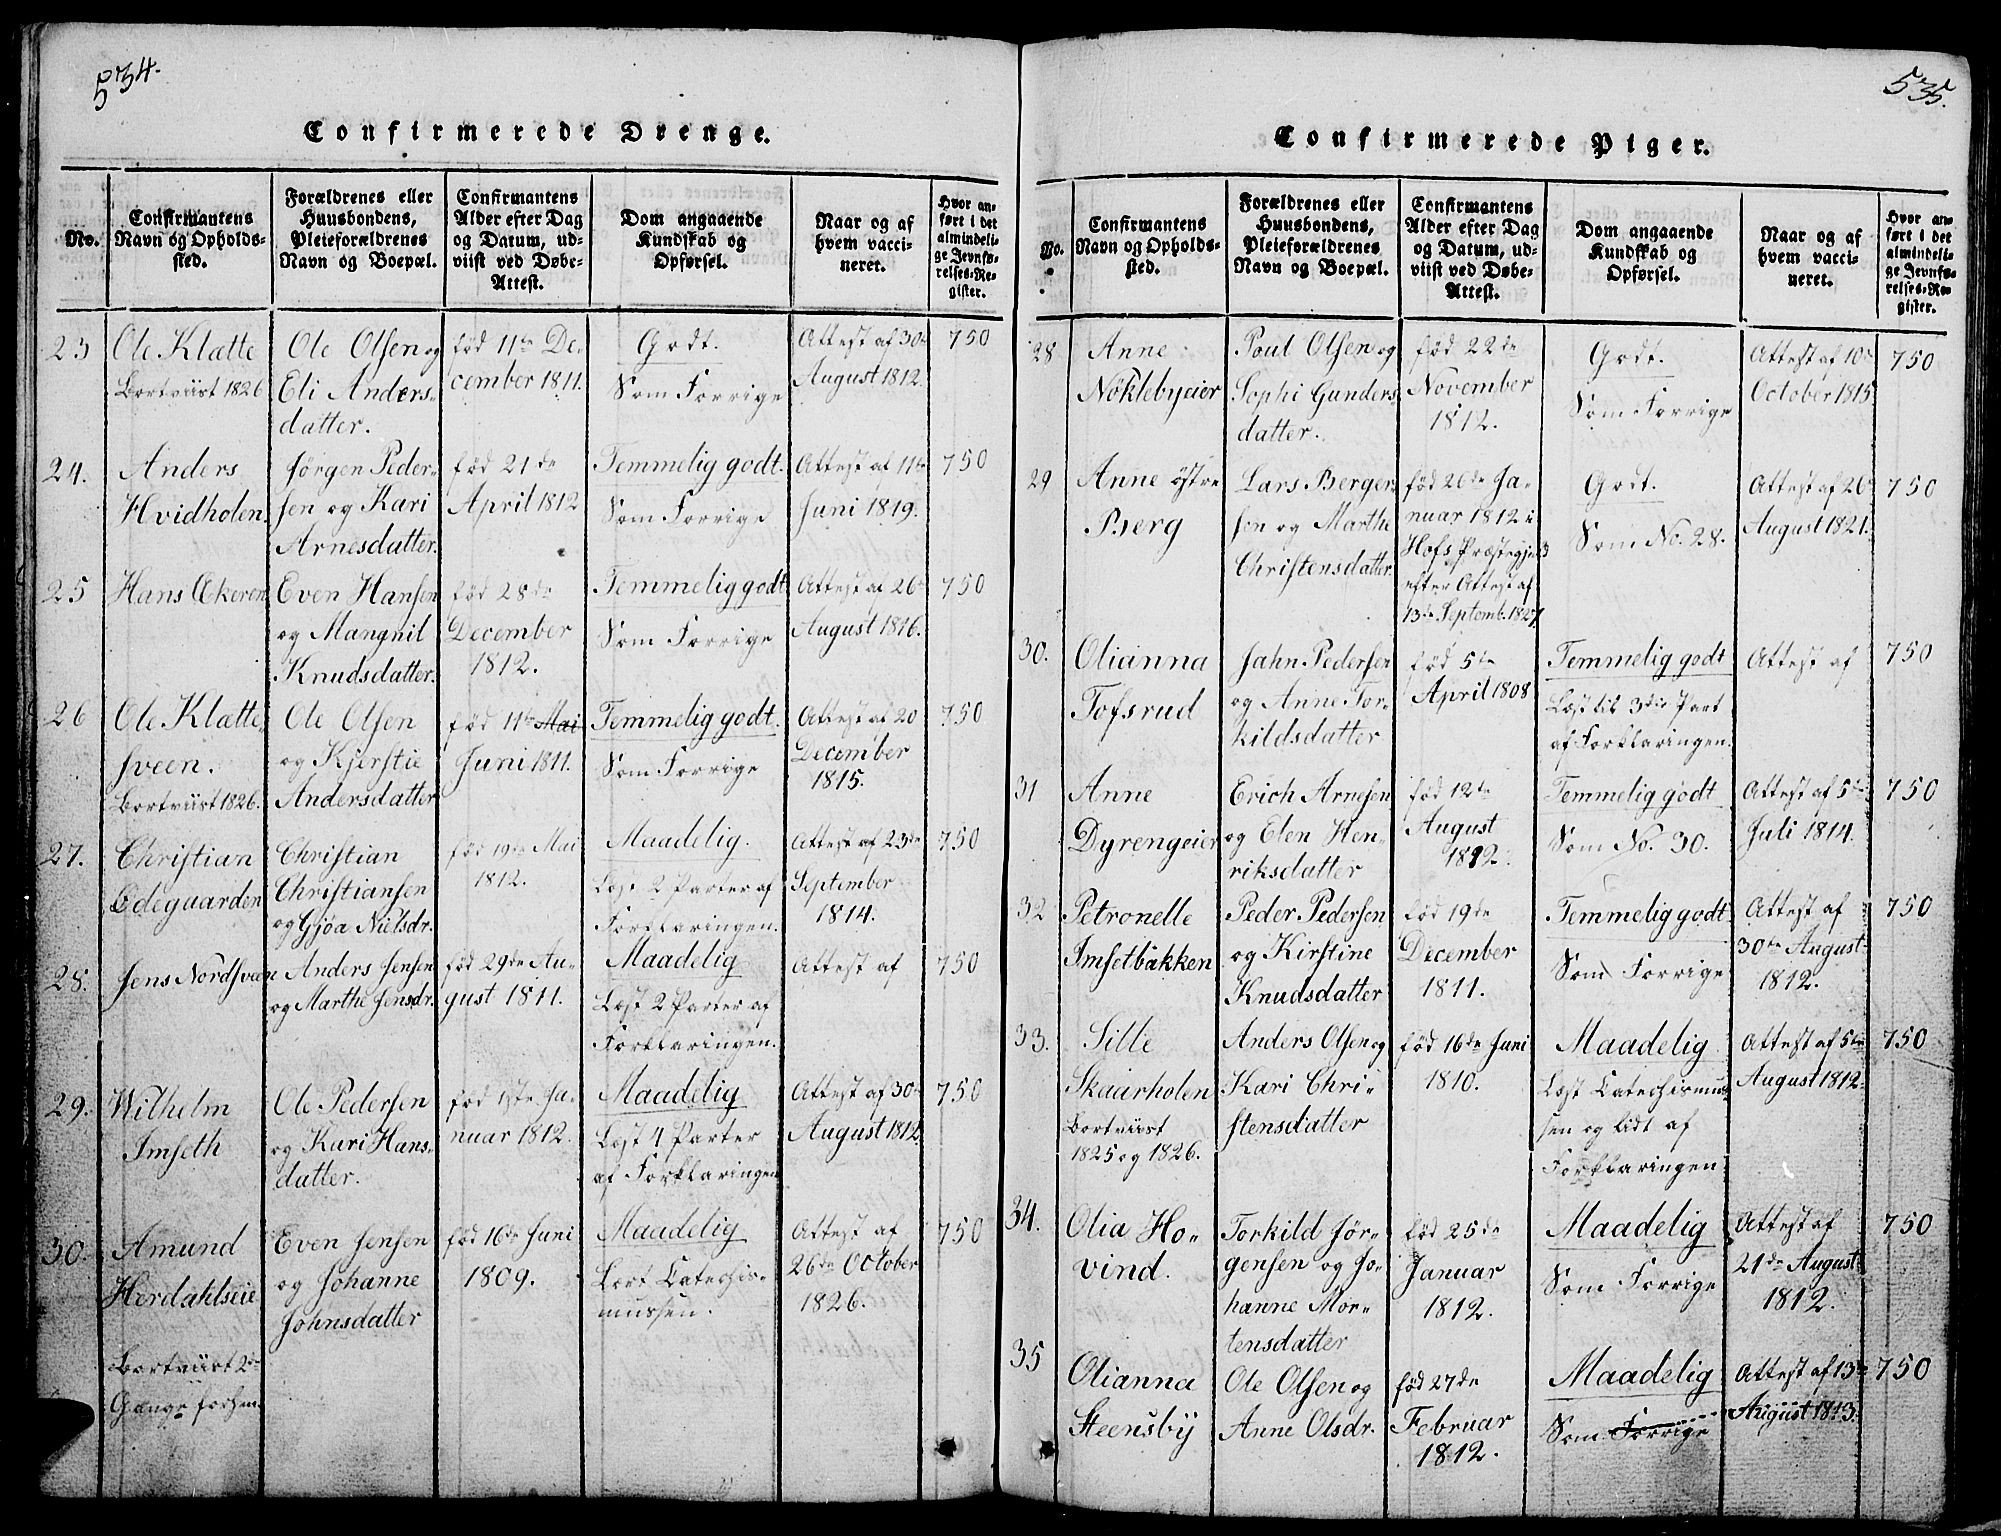 534.
Confirmerede Drenge.
No.
Confirmantens
Navn og Opholds-
sted.
Forældrenes eller
Huusbondens,
Pleieforældrenes
Navn og Boepæl.
Confirmantens
Alder efter Dag
og Datum, ud-
viist ved Døbe-
Attest.
Dom angaaende
Kundskab og
Opførsel.
Naar og af
hvem vacci-
neret.
Hvor an-
ført i det
almindeli-
ge Jevnfø-
relses-Re-
gister.
23
Ole Klætte
Bortviist 1826
Ole Olsen og
Eli Anders-
datter.
fød 11te De-
cember 1811.
Godt.
Som Forrige
Attest af 30te
August 1812.
750
24.
Anders
Hvidholen.
Jørgen Peder-
sen og Kari
Arnesdatter.
fød 21de
April 1812
Temmelig godt.
Som Forrige
Attest af 11te
Juni 1819.
750
25
Hans Ækeren
Even Hansen
og Mangnil
Knudsdatter.
fød 28de
December
1812.
Temmelig godt
Som Forrige
Attest af 26te
August 1816.
750
26
Ole Klætte-
sveen.
Bortviist 1826.
Ole Olsen
og Kjerstie
Andersdatter
fød 11te Mai
Juni 1811.
Temmelig godt.
Som Forrige
Attest af 20
December
1815.
750
27.
Christian
Ødeguarden
Christian
Christiansen
og Gjøa Nielsdr.
fød 19de Mai
1812.
Maadelig.
Læst 2 Parter af
Forklaringen.
Attest af 23de
September
1814.
750
28.
Jens Nordsveen
Anders Jensen
og Marthe Jensdr.
fød 29de Au-
gust 1811.
Maadelig
Læst 2 Parter af
Forklaringen.
Attest af
750
29.
Wilhelm
Imseth
Ole Pedersen
og Kari Hans-
datter.
fød 1ste Ja-
nuar 1812.
Maadelig
Læst 4 Parter
af Forklaringen
Attest af 30te
August 1812
750
30.
Amund
Herdahlseie
Bortviist 2de
Gange forhen.
Even Jensen
og Johanne
Johnsdatter
fød 16de Juni
1809.
Maadelig
Lært Catechis-
mussen.
Attest af
26de October
1826.
750
535.
Confirmerede Piger.
No.
Confirmantens
Navn og Opholds-
sted.
Forældrenes eller
Huusbondens,
Pleieforældrenes
Navn og Boepæl.
Confirmantens
Alder efter Dag
og Datum, ud-
viist ved Døbe-
Attest.
Dom angaaende
Kundskab og
Opførsel.
Naar og af
hvem vacci-
neret.
Hvor an-
ført i det
almindeli-
ge Jevnfø-
relses-Re-
gister.
28
Anne
Nöklebyeier
Poul Olsen og
Sophi Gunders-
datter.
fød 22de
November
1812.
Godt.
Som Forrige
Attest af 10de
October 1815
750
29
Anne østre
Berg
Lars Berger-
sen og Marthe
Christensdatter
fød 26de Ja-
nuar 1812 i
Hofs Præstegjed
efter Attest af
13de Septemb. 1827
Godt.
Som No. 28.
Attest af 26de
August 1821.
750
30.
Olianna
Tofsrud
Jahn Pedersen
og Anne Tor-
kildsdatter
fød 5te
April 1808
Temmelig godt
Læst til 3die Part
af Forklaringen.
Attest af
750
31
Anne
Dyrengeier
Erich Arnesen
og Elen Hen-
riksdatter
fød 12te
August
1812.
Temmelig godt
Som No. 30.
Attest af 5te
Juli 1814.
750
32
Petronelle
Imsetbakken
Peder Pedersen
og Kirstine
Knudsdatter
fød 19de
December
1811.
Temmelig godt
Som Forrige
Attest af
30te August
1812.
750
33.
Sille
Skaarholen
Bortviist
1825 og 1826.
Anders Olsen og
Kari Chri-
stensdatter
fød 16de Juni
1810.
Maadelig
Læst Catechismus-
sen og lidt af
Forklaringen
Attest af 5te
August 1812.
750
34.
Olia Ho-
vind.
Torkild Jør-
gensen og Jo-
hanne Mor-
tensdatter
fød 25de
Januar
1812.
Maadelig
Som Forrige
Attest af
21de August
1812.
750
35
Olianna
Steensby
Ole Olsen og
Anne Olsdr.
fød 27de
Februar
1812.
Maadelig
Som Forrige
Attest af 13de
August 1813.
750